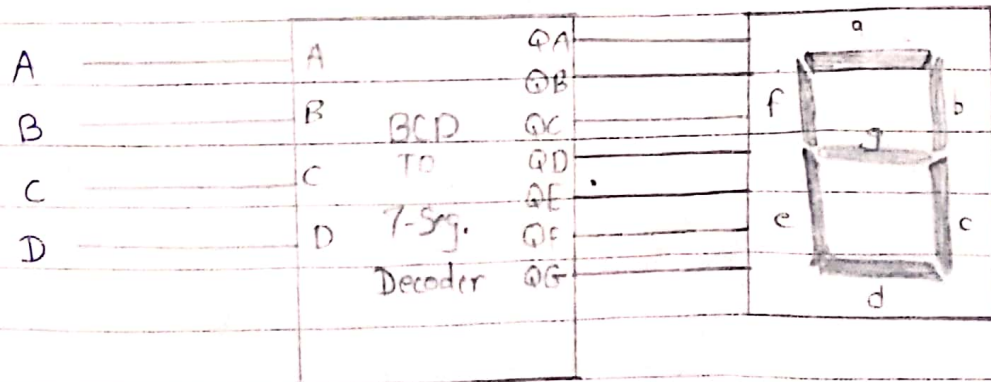 A
B
C
D
A
B
C
D
BCD
TO
7-Seg.
Decoder
QA
QB
QC
QD
QE
QF
QG
a
f
b
g
e
c
d